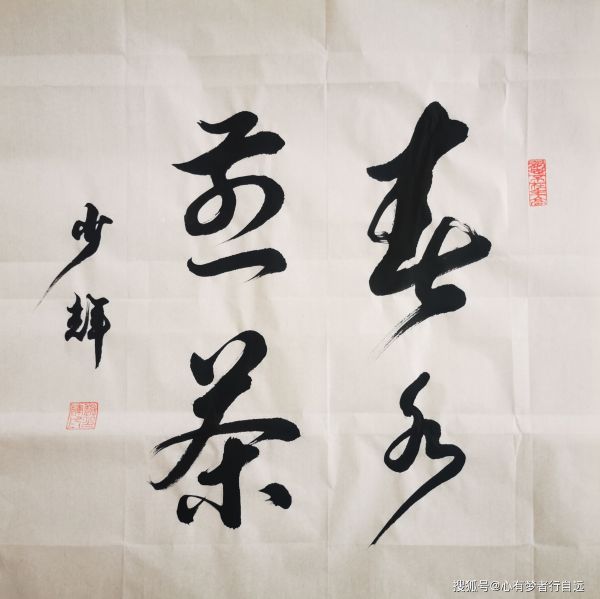 春水
煎茶
少辉
搜狐号@心有梦者行自远